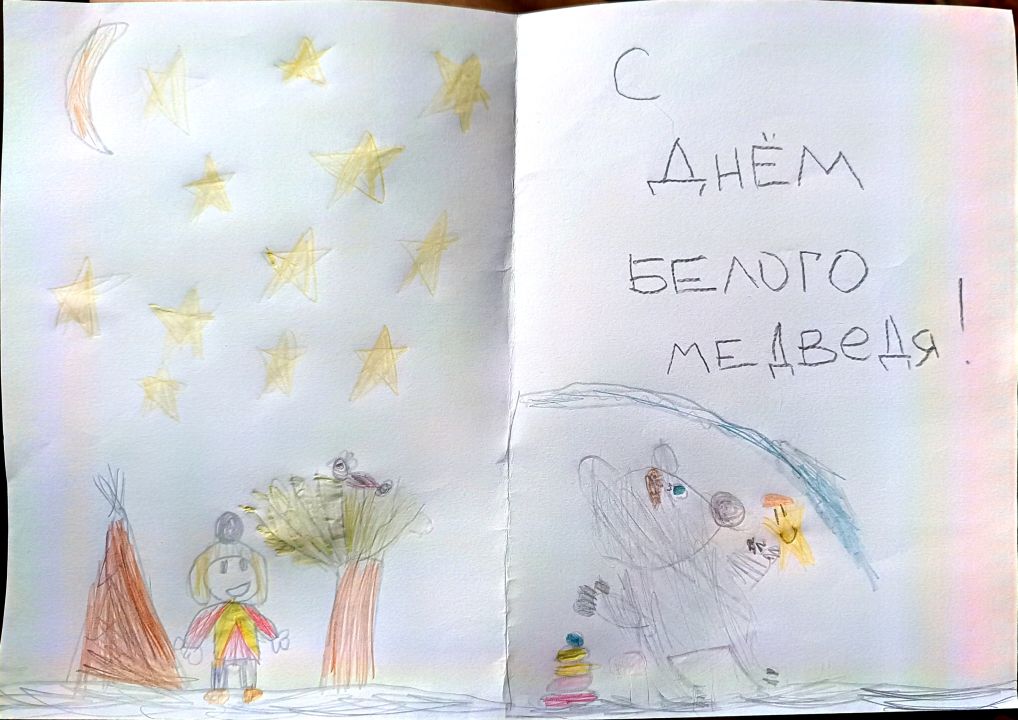 С
ДНЁМ
БЕЛОГО
МЕДВЕДЯ!